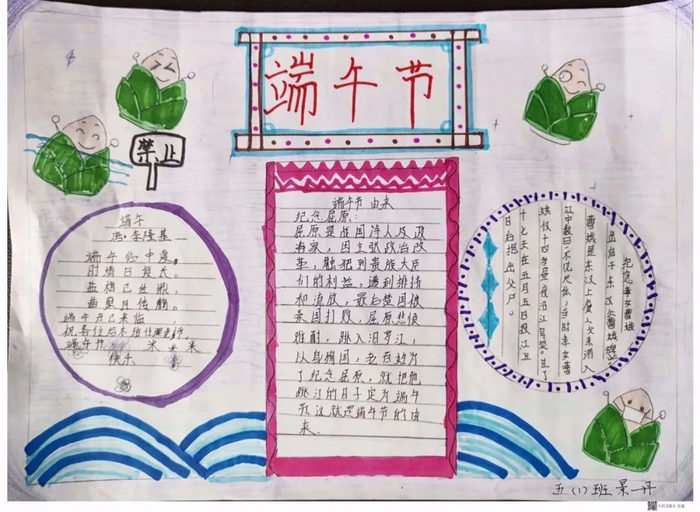 端午节
禁止
端午
唐·李隆基
端午临中夏，
时清日复长。
端午节
快乐
端午节由来
纪念屈原：
屈原是战国诗人及政
治家，因主张政治改
革，触犯到贵族大臣
们的利益，遭到排挤
和流放，最后楚国被
秦国打败，屈原悲愤
难耐，跳入汨罗江，
以身殉国，老百姓为
了纪念屈原，就把他
跳江的日子定为端午
节这就是端午节的由
来。
纪念孝女曹娥
曹娥是东汉上虞人父亲溺入
江中数日不见尸体，当时孝女曹
娥仅十四岁昼夜沿江号哭。过了
十七天在五月五日投江五
日后抱出父尸。
五(1)班景一丹